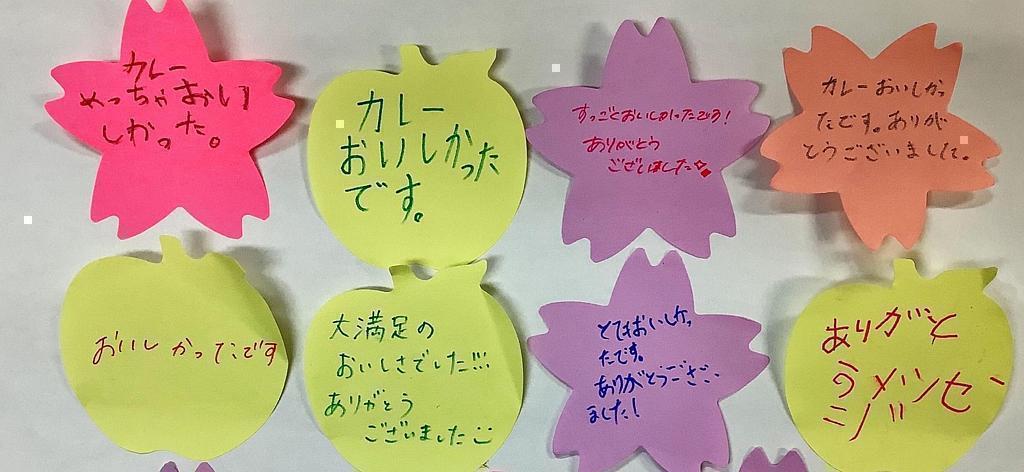 カレー
めっちゃおい
しかった。
カレー
おいしかった
です。
すっごくおいしかったです！
ありがとう
ございました
カレーおいしかっ
たです。ありが
とうございました。
おいしかったです
大満足の
おいしさでした!!!
ありがとう
ございました
とてもおいしかっ
たです。
ありがとうござい
ました！
ありがと
う